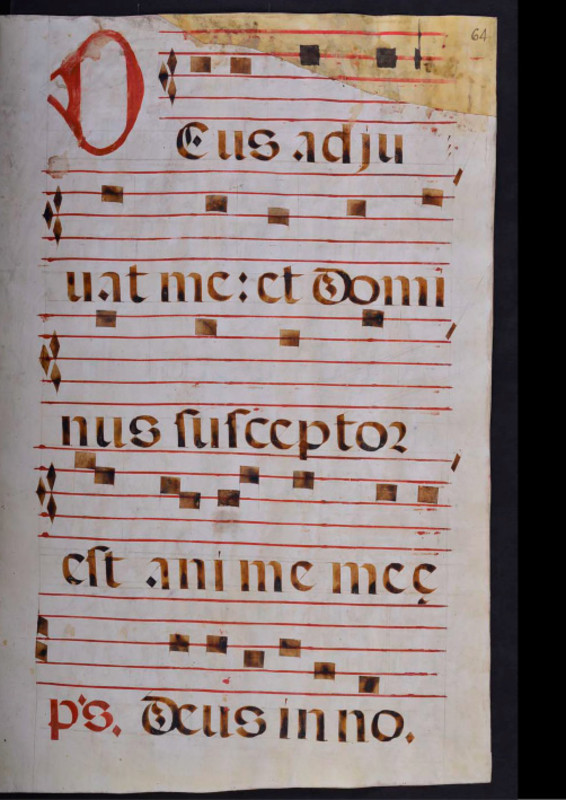 64
DEus adju
uat me: et Domi
nus ſuſceptoꝛ
eſt anime meę
ps. Deus in no.